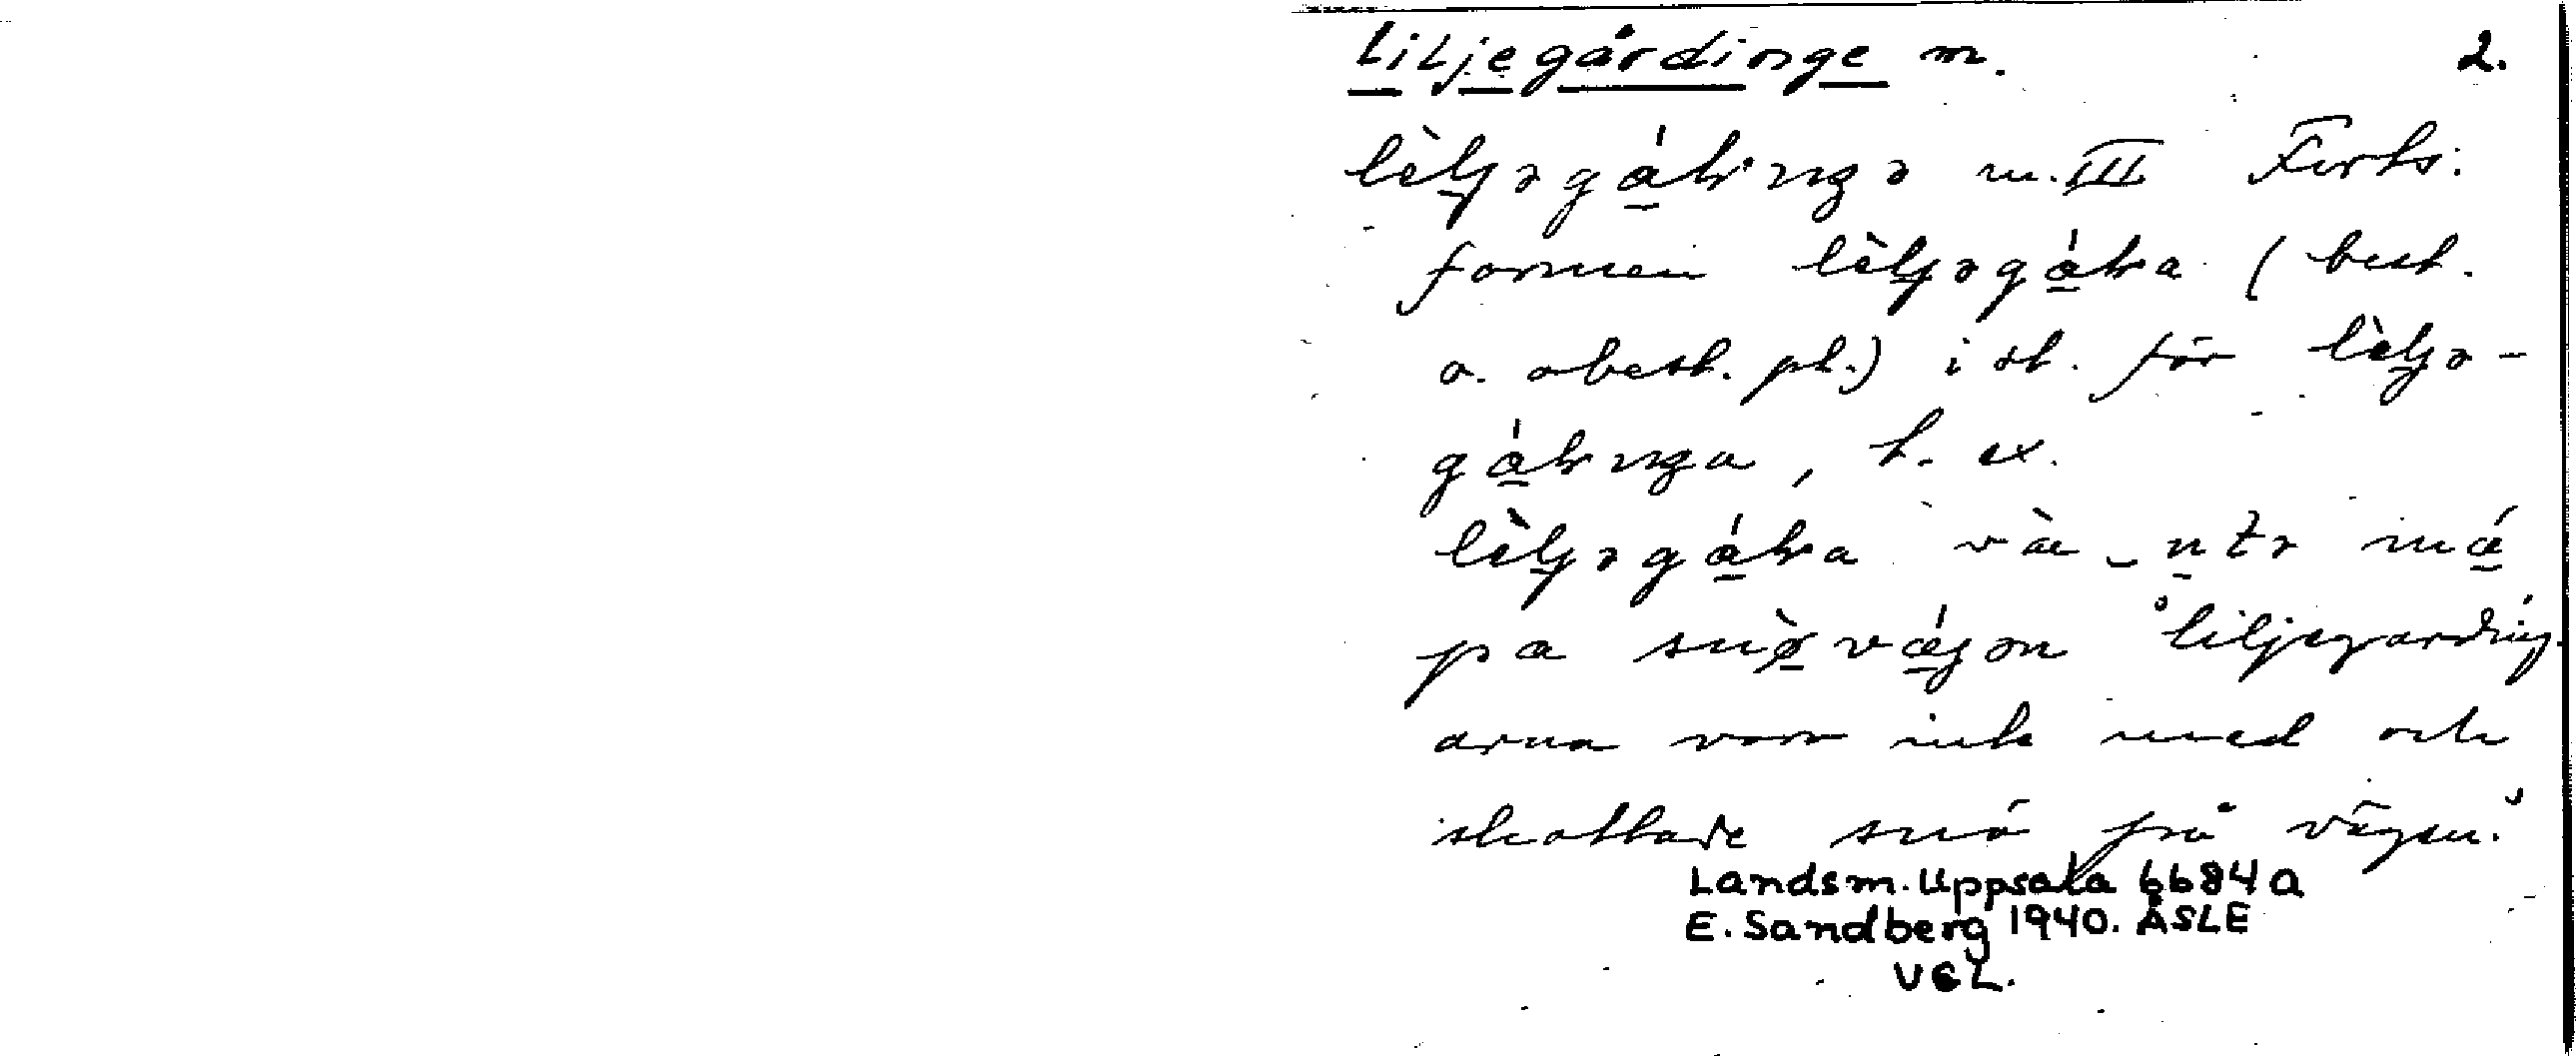 Liljegårdinge m. 2.
lèljəgáɽiŋə m. III Forts.
formen lèljəgáɽa (best.
o. obest. pl.) i st. för lèljə-
gáɽiŋa, t. ex.
lèljəgáɽa và ntə mǽ
pa snø̀vǽjən "liljegårding-
arna vor inte med och
skottade snö på vägen."
Landsm. Uppsala 6684 a
E. Sandberg 1940. ÅSLE
VGL.